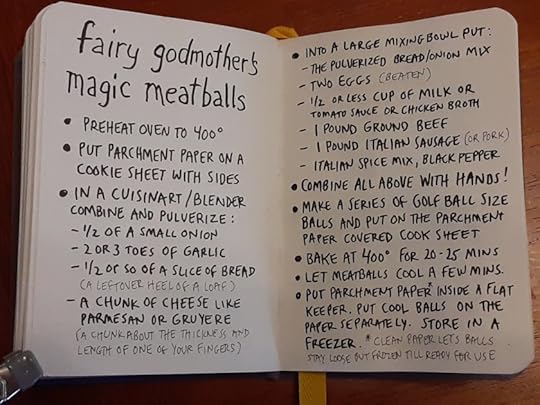 fairy godmother's
magic meatballs
• PREHEAT OVEN TO 400°
• PUT PARCHMENT PAPER ON A
COOKIE SHEET WITH SIDES
• IN A CUISINART/BLENDER
COMBINE AND PULVERIZE:
- 1/2 OF A SMALL ONION
- 2 OR 3 TOES OF GARLIC
- 1/2 OR SO OF A SLICE OF BREAD
(A LEFTOVER HEEL OF A LOAF)
- A CHUNK OF CHEESE LIKE
PARMESAN OR GRUYERE
(A CHUNK ABOUT THE THICKNESS AND
LENGTH OF ONE OF YOUR FINGERS)
• INTO A LARGE MIXING BOWL PUT:
- THE PULVERIZED BREAD/ONION MIX
- TWO EGGS (BEATEN)
- 1/2 OR LESS CUP OF MILK OR
TOMATO SAUCE OR CHICKEN BROTH
- 1 POUND GROUND BEEF
- 1 POUND ITALIAN SAUSAGE (OR PORK)
- ITALIAN SPICE MIX, BLACK PEPPER
• COMBINE ALL ABOVE WITH HANDS!
• MAKE A SERIES OF GOLF BALL SIZE
BALLS AND PUT ON THE PARCHMENT
PAPER COVERED COOK SHEET
• BAKE AT 400° FOR 20-25 MINS
• LET MEATBALLS COOL A FEW MINS.
• PUT PARCHMENT PAPER* INSIDE A FLAT
KEEPER. PUT COOL BALLS ON THE
PAPER SEPARATELY. STORE IN A
FREEZER. * CLEAN PAPER LETS BALLS
STAY LOOSE BUT FROZEN TILL READY FOR USE